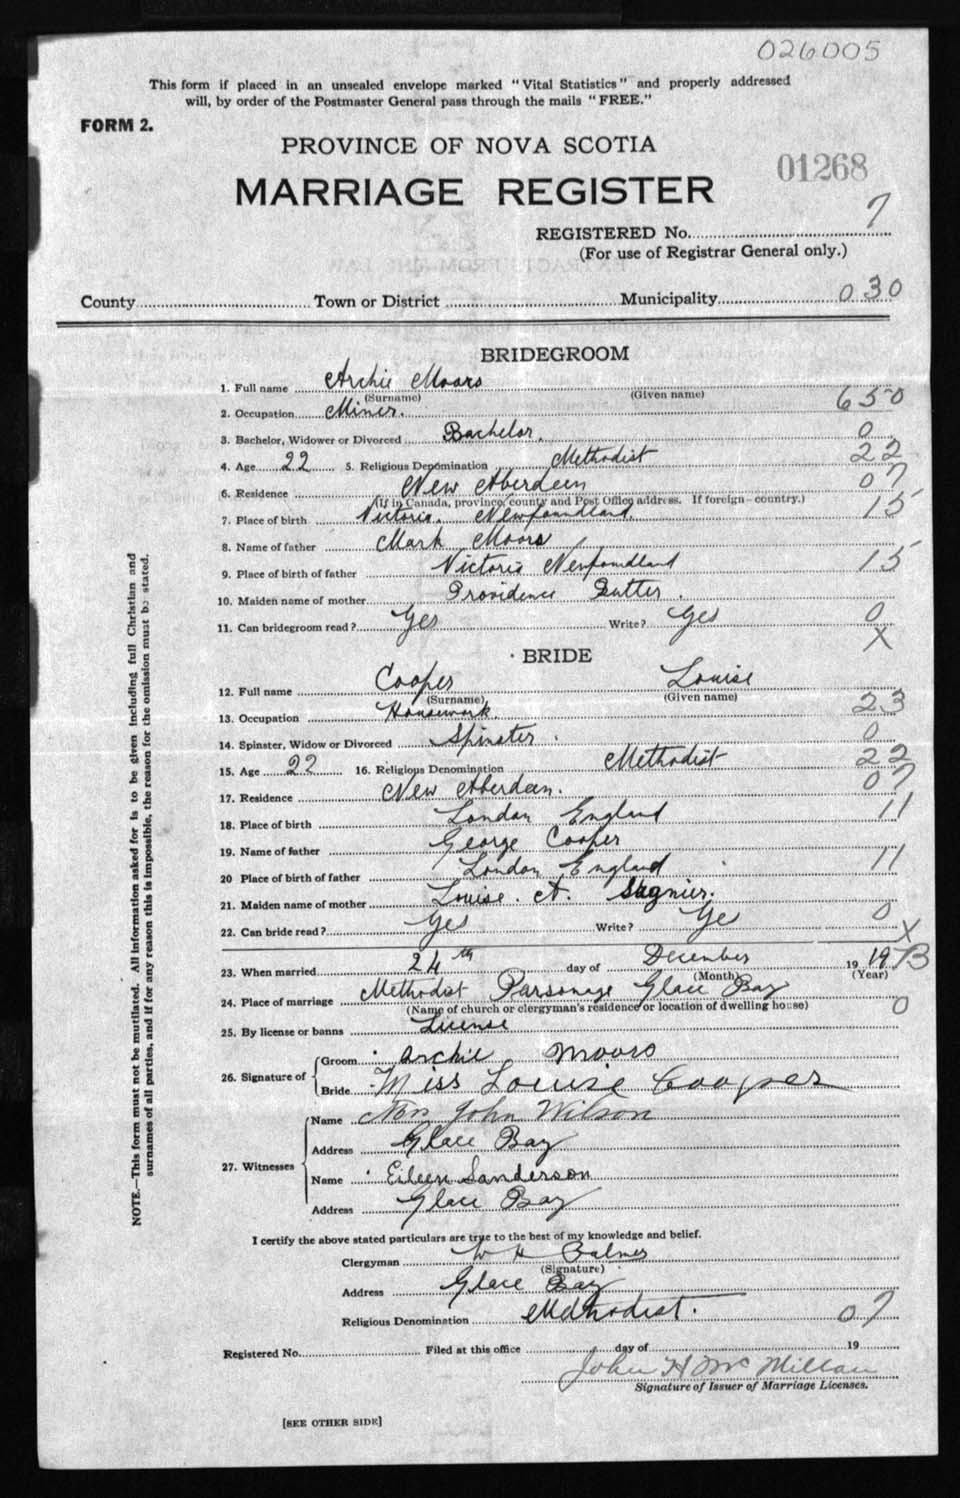 026005
This form if placed in an unsealed envelope marked "Vital Statistics" and properly addressed
will, by order of the Postmaster General pass through the mails "FREE."
FORM 2.
PROVINCE OF NOVA SCOTIA
01268
MARRIAGE REGISTER
REGISTERED No. 7
(For use of Registrar General only.)
County Town or District Municipality 030
BRIDEGROOM
1. Full name Archie Moors
(Surname) (Given name)
2. Occupation Miner. 650
3. Bachelor, Widower or Divorced Bachelor. 0
4. Age 22 5. Religious Denomination Methodist 22
6. Residence New Aberdeen 07
(If in Canada, province, county and Post Office address. If foreign—country.)
7. Place of birth Victoria. Newfoundland. 15
8. Name of father Mark Moors
9. Place of birth of father Victoria Newfoundland 15
10. Maiden name of mother Providence Butter.
11. Can bridegroom read? Yes Write? Yes 0
X
BRIDE
12. Full name Cooper Louise
(Surname) (Given name)
13. Occupation Housework. 23
14. Spinster, Widow or Divorced Spinster. 0
15. Age 22 16. Religious Denomination Methodist 22
17. Residence New Aberdeen. 07
18. Place of birth London England 11
19. Name of father George Cooper
20 Place of birth of father London England 11
21. Maiden name of mother Louise. A.
22. Can bride read? Yes Write? Ye 0
X
23. When married 24th day of December 19 19 13
(Month) (Year)
24. Place of marriage Methodist Parsonage Glace Bay 0
(Name of church or clergyman's residence or location of dwelling house)
25. By license or banns License
26. Signature of Groom Archie Moors
Bride Miss Louise Cooper
27. Witnesses Name Mrs John Wilson
Address Glace Bay
Name Eileen Sanderson
Address Glace Bay
I certify the above stated particulars are true to the best of my knowledge and belief.
Clergyman W H Palmer
(Signature)
Address Glace Bay
Religious Denomination Methodist. 07
Registered No. Filed at this office day of 19
John H Mc Millan
Signature of Issuer of Marriage Licenses.
[SEE OTHER SIDE]
NOTE.—This form must not be mutilated. All information asked for is to be given including full Christian and
surnames of all parties, and if for any reason this is impossible, the reason for the omission must be stated.